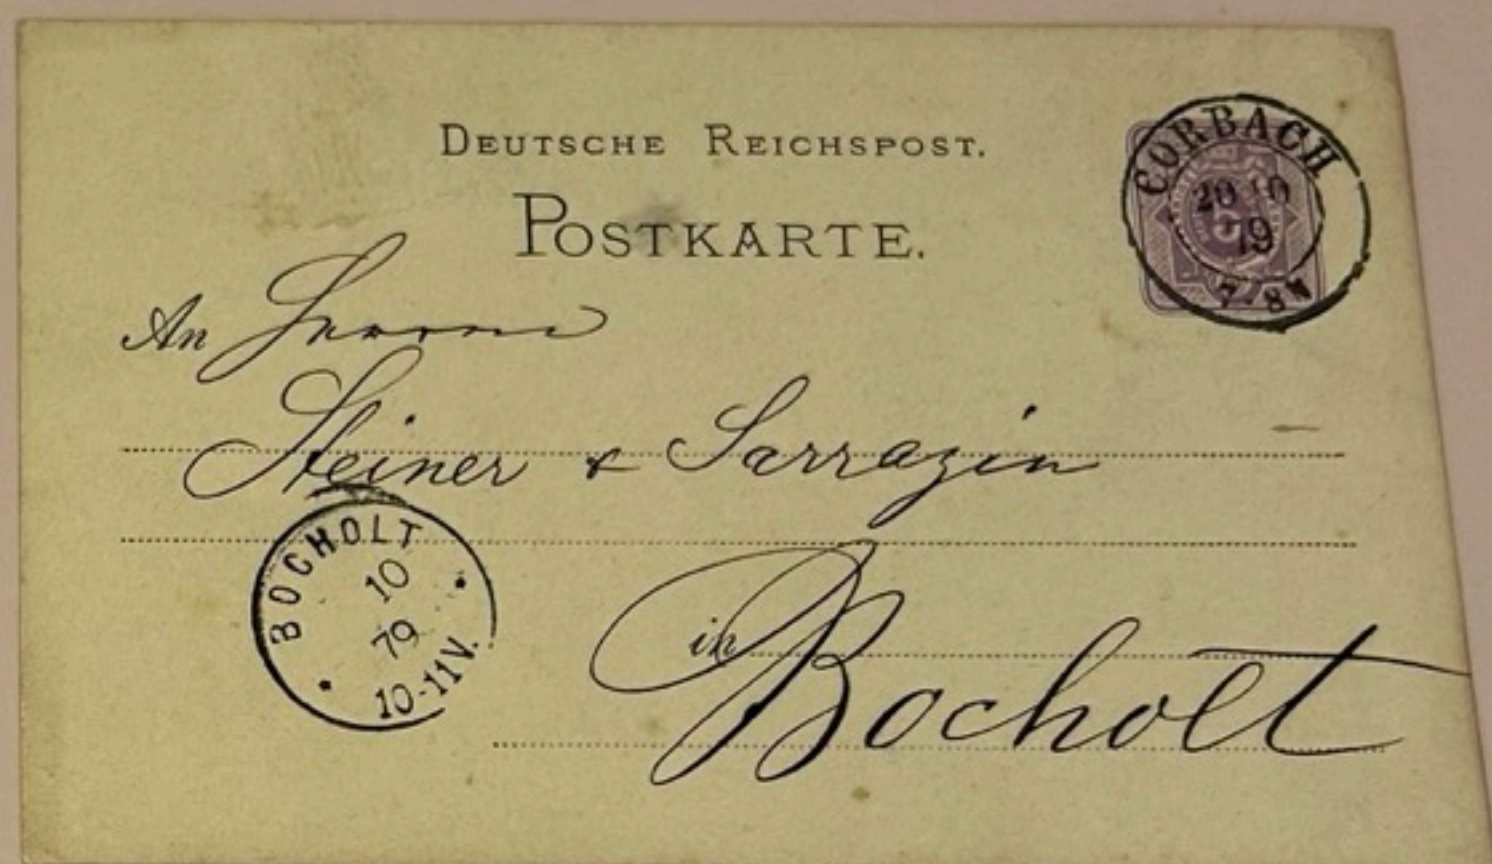 DEUTSCHE REICHSPOST.
POSTKARTE.
CORBACH
20 10
79
7-8N
An Herren
Steiner & Sarrazin
BOCHOLT
10
79
10-11V.
in Bocholt